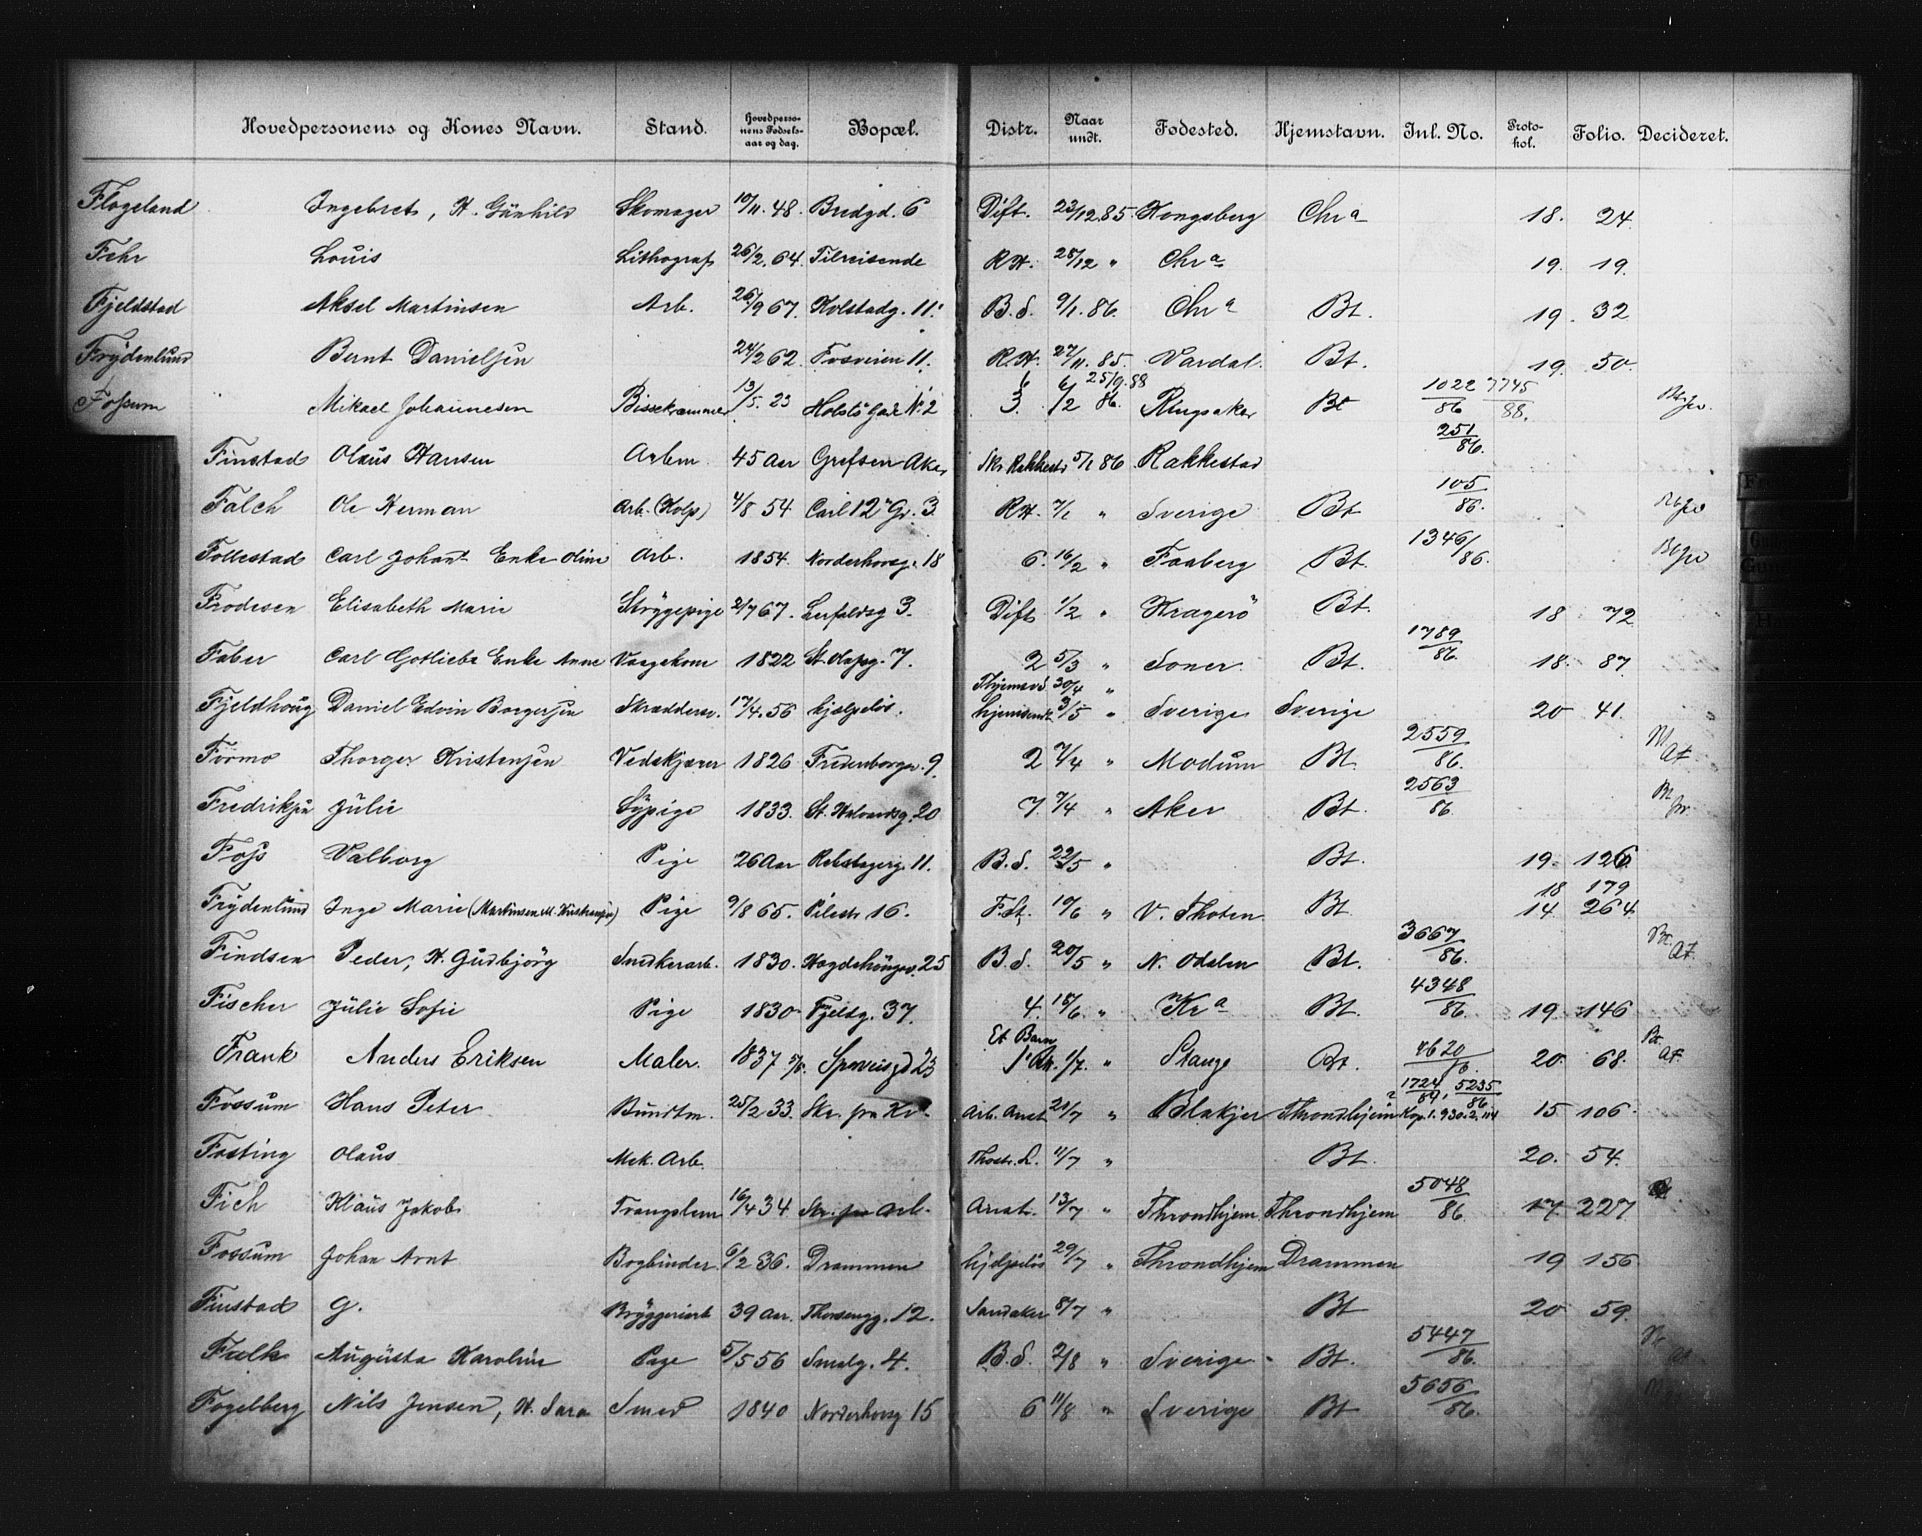 Hovedpersonens og Kones Navn. Stand. Hovedpersonens Fødselsaar og dag. Bopæl. Distr. Naar undt. Fødested. Hjemstavn. Jnl. No. Protokol. Folio. Decideret.
Flogeland Ingebret, H. Gunhild Skomager 10/11.48. Bredgd. 6 Dift. 23/12.85. Kongsberg Chra 18. 24.
Fehr Louis Lithograf 26/2.64. Tilreisende R.H. 28/12 " Chra 19. 19.
Fjeldstad Aksel Martinsen Arb. 26/9 67. Kolstadg. 11. B.S. 9/1.86. Chra Bt. 19. 32
Frydenlund Bernt Danielsen 24/2 62. Fosveien 11. R.H. 27/11.85. Vardal. Bt. 19. 50.
Fossum Mikael Johannesen Bissekræmmer 13/5.23 Holsts Gade No. 2 3. 6/2 86. 25/9.88 Ringsaker Bt 1022/86 7745/88.
Finstad Olaus Hansen Arbm. 45 Aar Grefsen Aker Rakkest. 5/1 86 Rakkestad 251/86.
Falch Ole Herman Arb. (Kolp) 4/8 54 Carl 12' Gd. 3. R.H. 7/1 " Sverige Bt 105/86.
Follestad Carl Johan Enke Oline Arb. 1854. Norderhovsg. 18 6. 16/2 " Faaberg Bt. 1346/86.
Frodesen Elisabeth Marie Strygepige 2/7 67. Lerfaldsg 3. Dift 1/2 " Kragerö Bt. 18 72
Faber Carl Gotlieb Enke Anne Vaagekone 1822 St. Olafsg. 7. 2 5/3 " Soner. Bt. 1789/86. 18. 87.
Fjeldhoug Daniel Edvin Borgersen Skrædderse. 17/4.56 hjælpeløs. Hjemsd. 30/4 " hjemsendt 3/5 " Sverige Sverige 20 41.
Formo Thorger Kristensen Vedskjærer 1826 Fredensborgv. 9. 2 7/4 " Modum Bt. 2559/86. At
Fredriksen Julie Sypige 1833. St. Halvardsg. 20 7. 7/4 " Aker Bt. 2563/86.
Foss Valborg Pige 26 Aar Rebslagerg. 11. B.S. 22/5 " Bt. 19. 126.
Frydenlund Inge Marie (Martinsen M. Kristiansen) Pige 9/8 65. Pilestr 16. F.St. 10/6 " V. Thoten Bt 18 179 14. 264.
Findsen Peder, H. Gudbjörg Snedkerarb. 1830. Hægdehougsv. 25 B.S. 20/5 " N. Odalen Bt. 3667/86. At.
Fischer Julie Sofie Pige 1830 Fjeldg. 37. 4. 18/6 " Kra Bt. 4348/86. 19 146
Frank Anders Eriksen Maler. 1837 Sporveisgd 23 Et Barn 1/7. " Stange Bt. 4620/86. 20. 68. At.
Fossum Hans Peter Bundtm. 25/2 33. Skr. fra Kr. Arb. Anst. 21/7 " Blakjer Throndhjem? 1724/84, 5235/86. Kop. 1. 930. 2. 114 15 106.
Fosting Olaus Mek. Arb. Thostr. L. 11/7 " Bt. 20. 54.
Fich Klaus Jakob Tvangslem 16/4 34 Skr. fra Arb. Anst. 13/7 " Throndhjem Throndhjem 5048/86. 17. 227.
Fossum Johan Arnt Bogbinder. 6/2 36. Drammen hjelpeløs 29/7 " Throndhjem Drammen 19 156
Finstad G. Bryggeriarb 39 Aar. Thorsengg. 12. Sandaker 8/7 " Bt 20 59.
Falk Augusta Karoline Pige 5/5 56 Smalg. 4. B.S. 2/8 " Sverige Bt. 5447/86.
Fogelberg Nils Jensen, H. Sara Smed 1840 Norderhovsg 15 6 11/8 " Sverige Bt 5656/86.